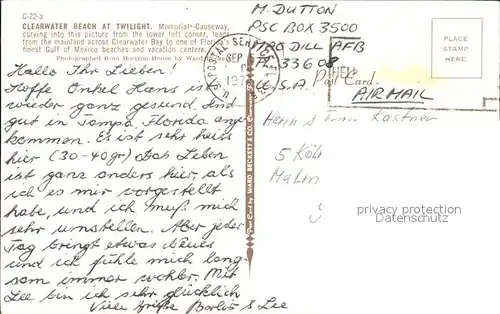 C-22-3
CLEARWATER BEACH AT TWILIGHT. Memorial Causeway,
curving into this picture from the lower left corner, leads
from the mainland across Clearwater Bay to one of Florida's
finest Gulf of Mexico beaches and vacation centers.
Photographed from Horizon House by Ward
Hallo Ihr Lieben!
Hoffe Onkel Hans ist
wieder ganz gesund. Sind
gut in Tampa, Florida ange
kommen. Es ist sehr heiss
hier (30-40gr) Das Leben
ist ganz anders hier, als
ich es mir vorgestellt
habe, und ich muß mich
sehr umstellen. Aber jeder
Tag bringt etwas Neues
und ich fühle mich lang-
sam immer wohler. Mit
Lee bin ich sehr glücklich
Viele Grüße & Lee
M. DUTTON
PSC BOX 3500
MAC DILL AFB
FL. 33608
U.S.A.
Post Card
AIR MAIL
U.S. POSTAL SERVICE
SEP
197
PLACE
STAMP
HERE
Post Card by WARD BECKETT & CO.
Kastner
5 Köln
protected by copyright
protected by copyright